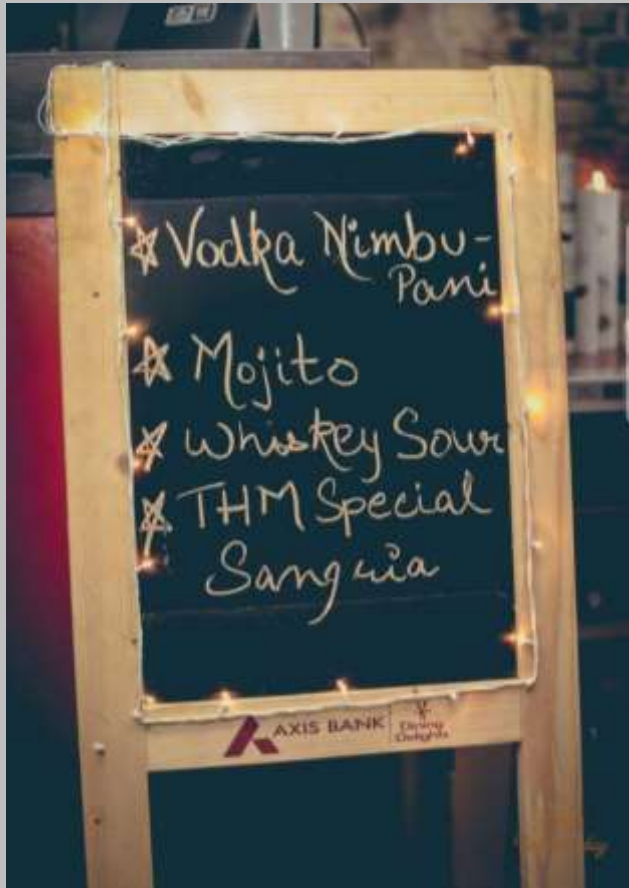 Vodka Nimbu-
Pani
Mojito
Whiskey Sour
THM Special
Sangria
AXIS BANK
Dining
Delights